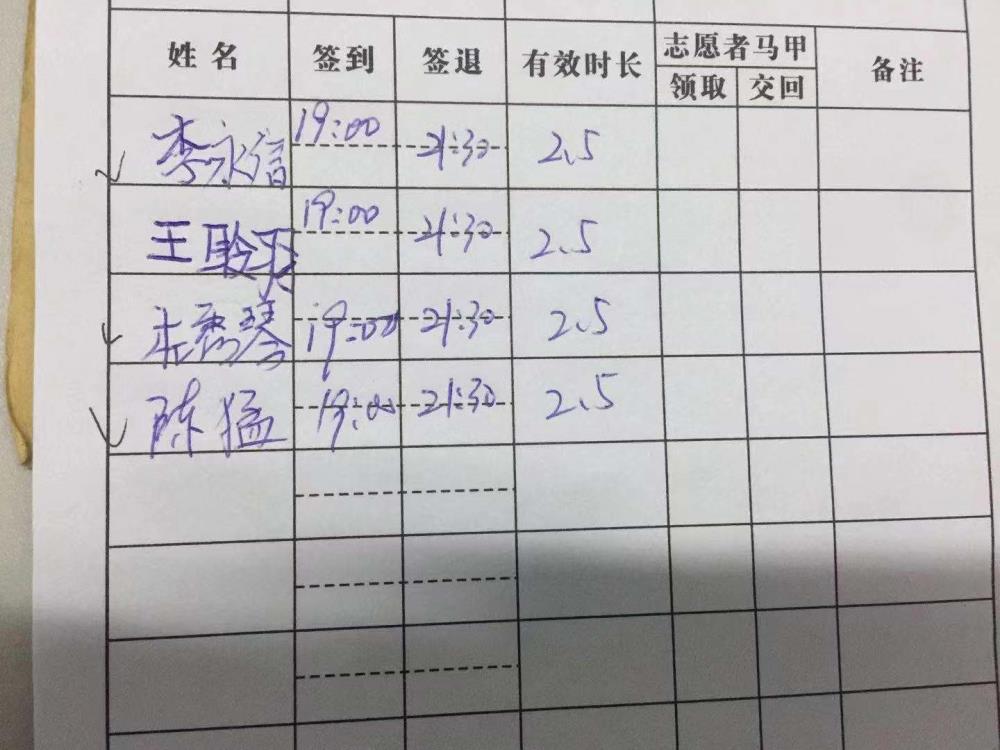 姓名 签到 签退 有效时长 志愿者马甲 备注
领取 交回
李永信 19:00 21:30 2.5
王 19:00 21:30 2.5
秀琴 19:00 21:30 2.5
陈猛 19:00 21:30 2.5